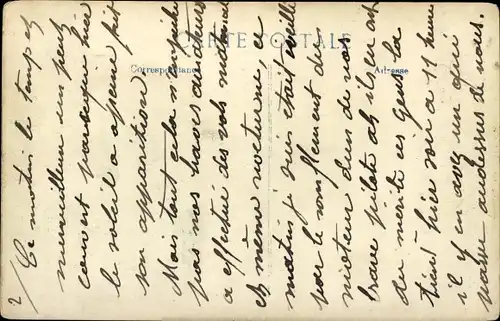 CARTE POSTALE
Correspondance
Adresse
2/ Ce matin le temps est
merveilleux un peu
couvert parce qu'hier
le soleil a a peine fait
son apparition
Mais tout cela n'empêche
pas nos braves aviateurs
a effectué des vols matinal
et même nocturne, ce
matin je suis était réveillé
par le ronflement du
moteur d'un de nos
brave pilote ah il en ont
du mérite ces gens la
tiens! hier soir a 11 heures
il y en avez un qui
passe audessus de nous.